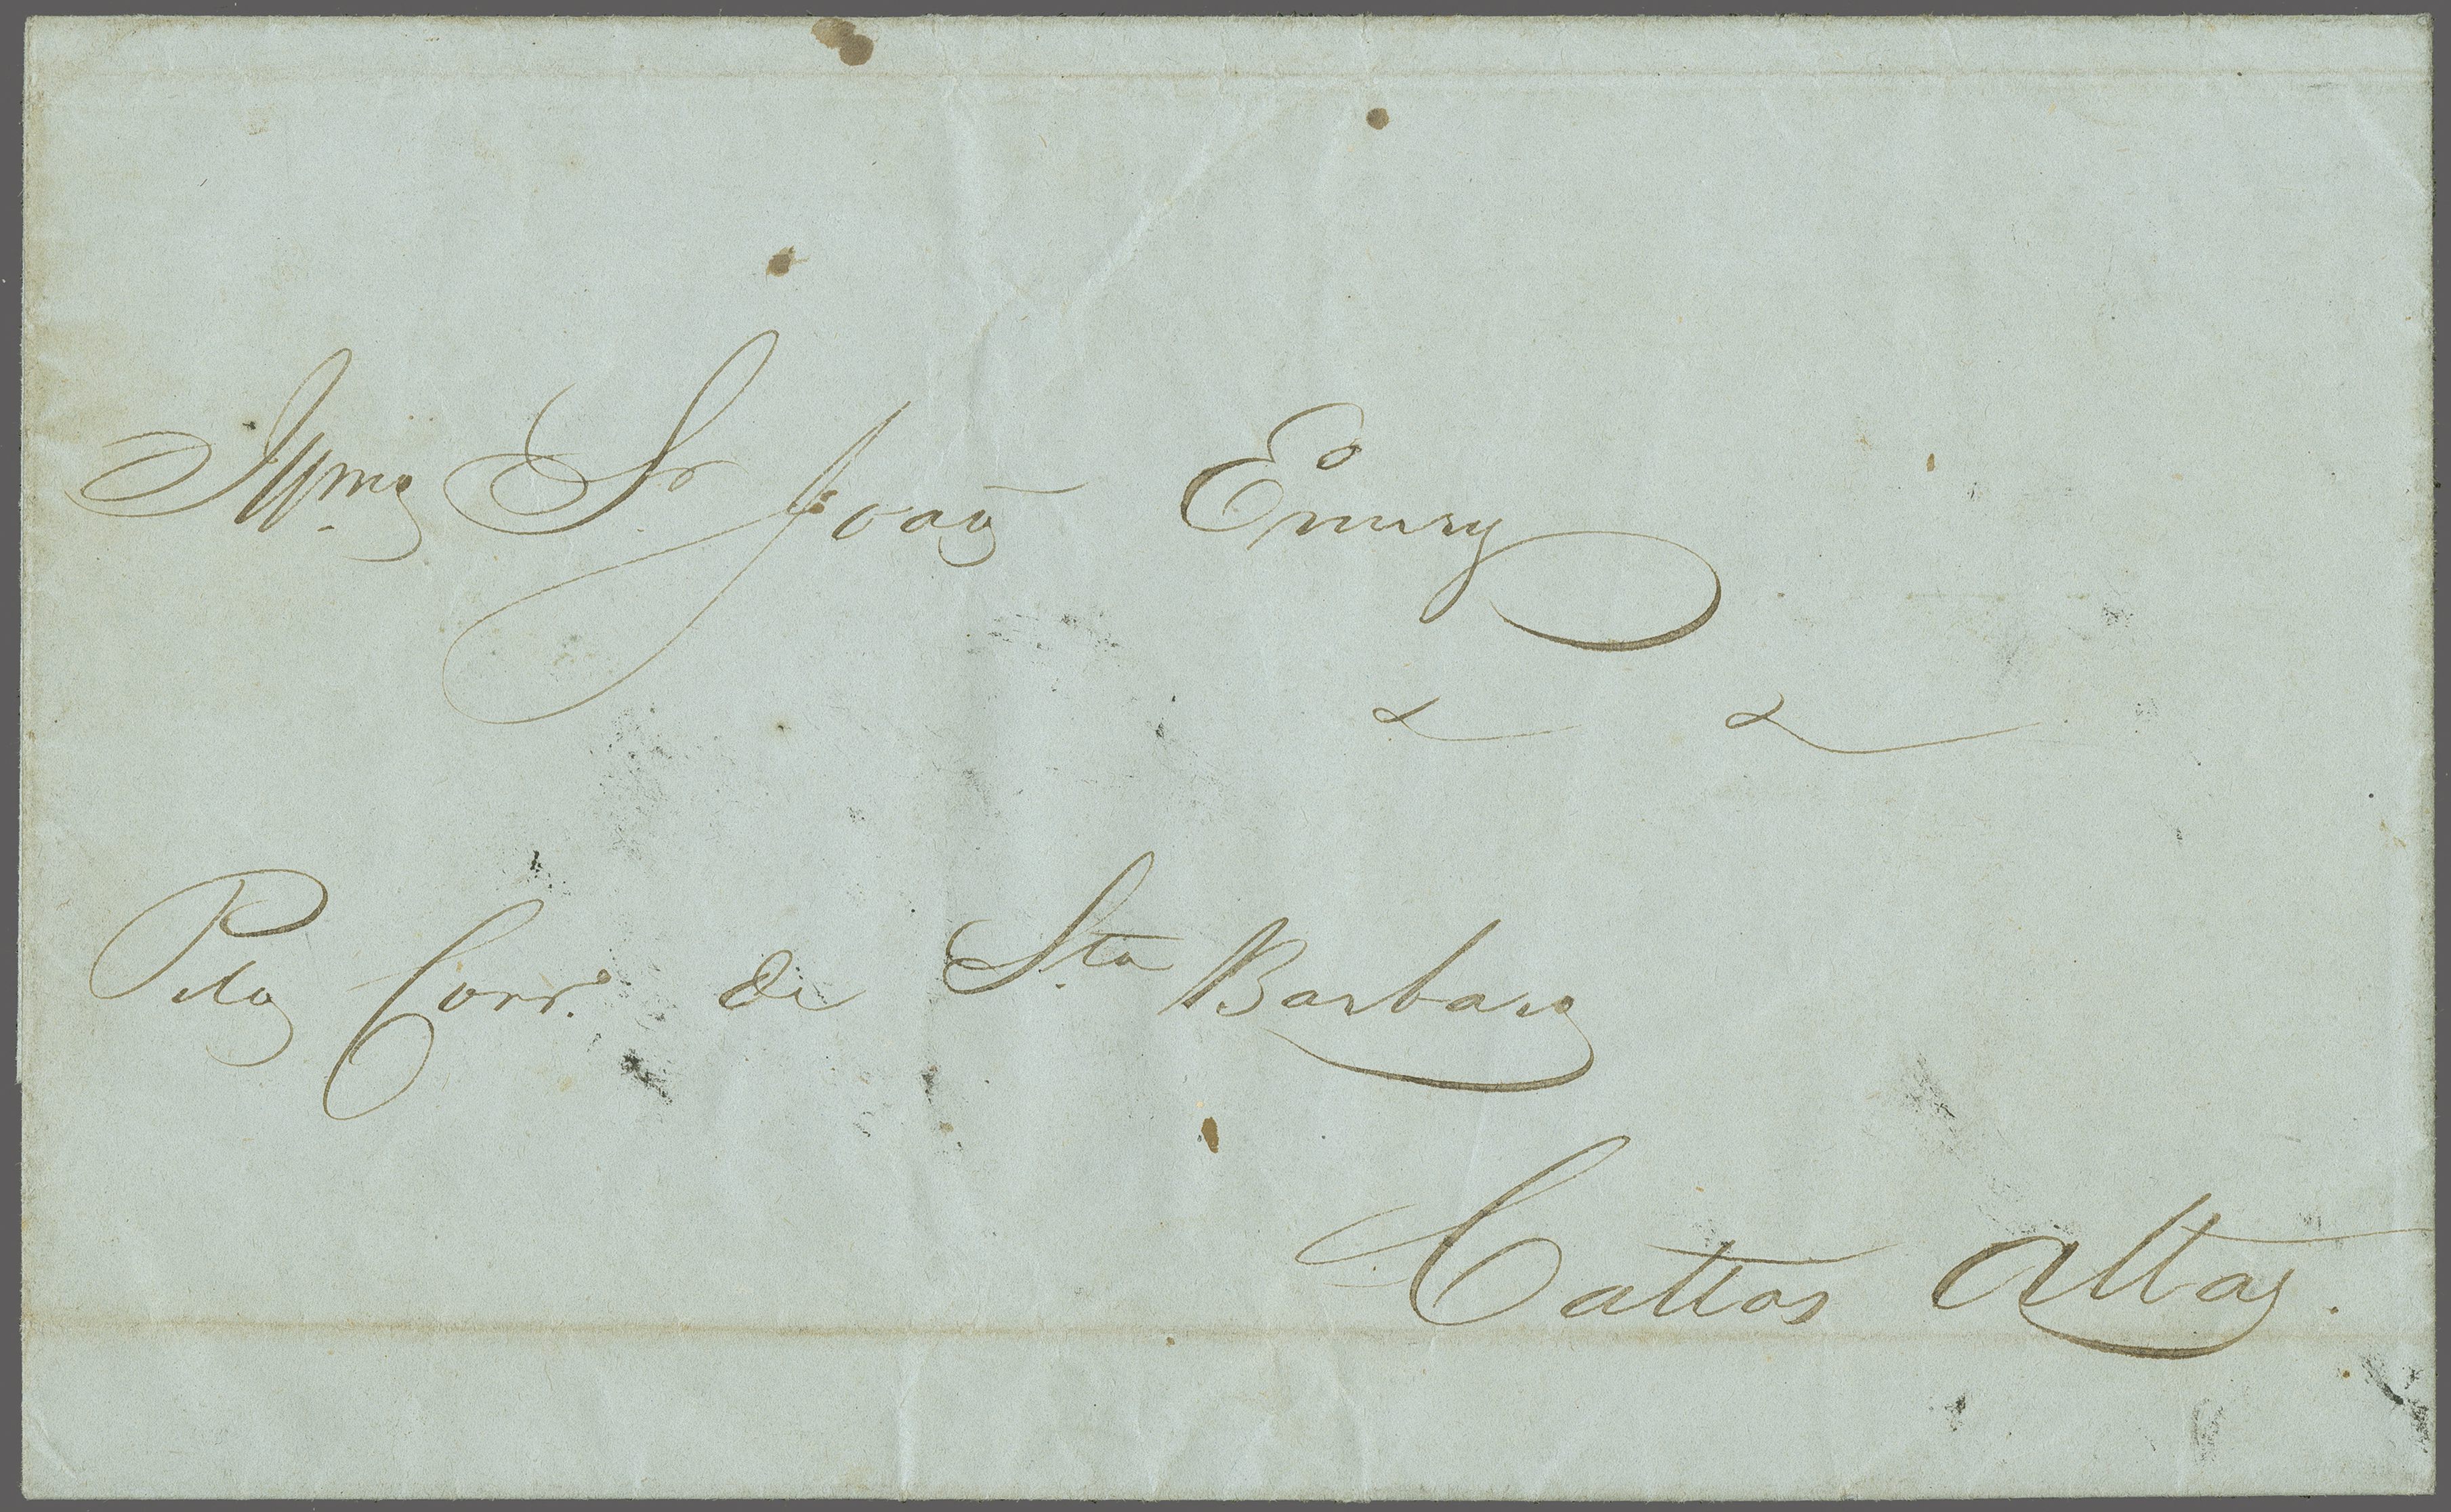 Illmo Sr João Emery
& &
Pelo Corro. de Sta Barbara
Cattas Altas.